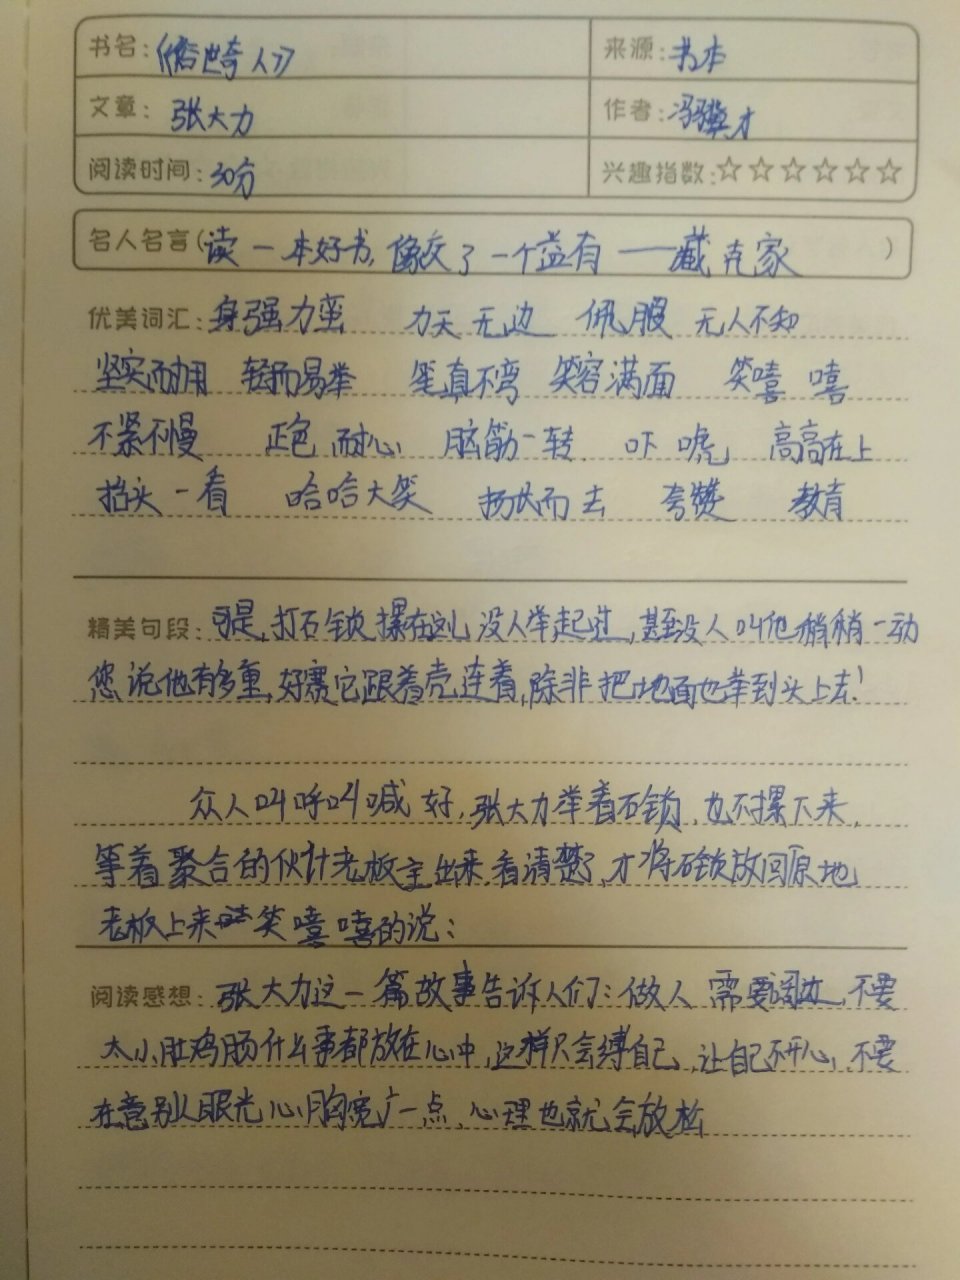 书名：《俗世奇人》 来源：书本
文章：张大力 作者：冯骥才
阅读时间：30分 兴趣指数：☆☆☆☆☆☆
名人名言（读一本好书，像交了一个益有——藏克家）
优美词汇：身强力蛮 力大无边 佩服 无人不知
坚实而耐用 轻而易举 笔直不弯 笑容满面 笑嘻嘻
不紧不慢 正色 耐心 脑筋一转 吓唬 高高在上
抬头一看 哈哈大笑 扬长而去 夸赞 教育
精美句段：可是，打石锁撂在这儿，没人举起过，甚至没人叫他稍稍一动
您说他有多重，好赛它跟着壳连着，除非把地面也举到头上去！
众人叫呼叫喊好，张大力举着石锁，也不撂下来，
等着聚合的伙计老板主出来，看清楚了，才将石锁放回原地
老板上来笑嘻嘻的说：
阅读感想：张大力这一篇故事告诉人们：做人需要阔达，不要
太小肚鸡肠什么事都放在心中，这样只会缚自己，让自己不开心，不要
在意别人眼光心胸宽广一点，心理也就会放松